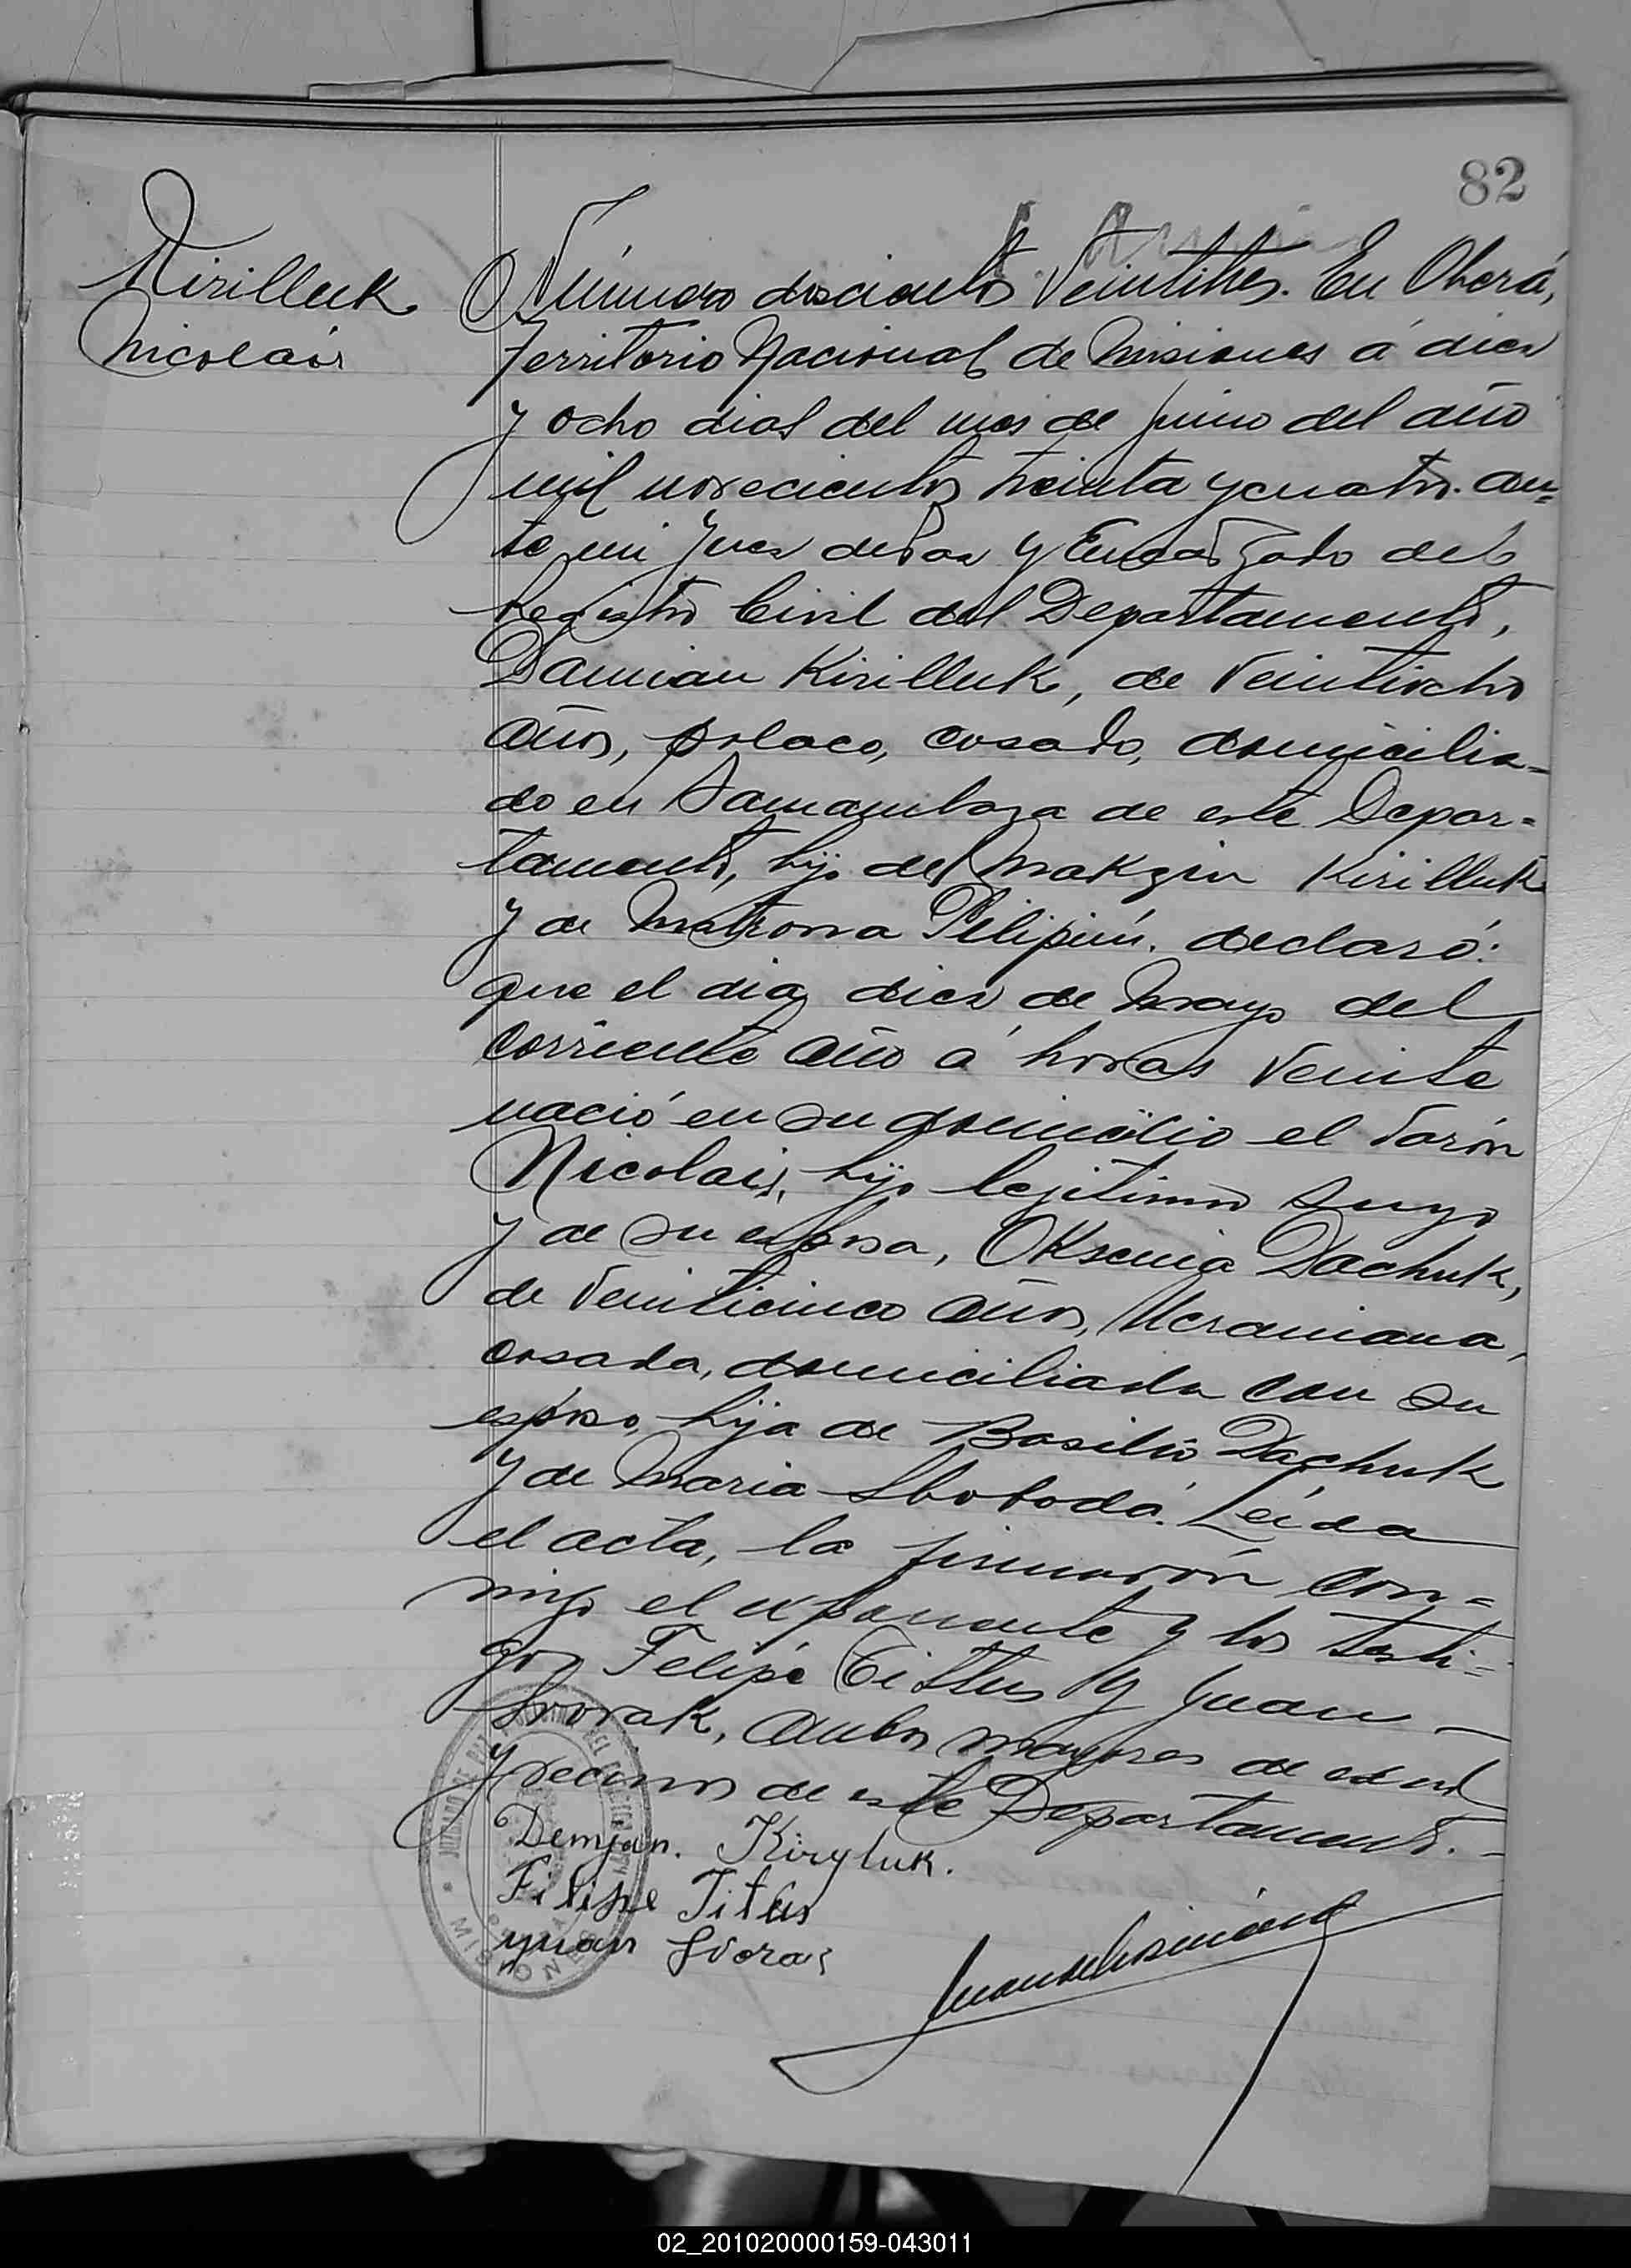 82
Kirilluk
Nicolais
Número doscientos veintitres. En Oberá,
Territorio Nacional de Misiones á diez
y ocho dias del mes de Junio del año
mil novecientos treinta y cuatro. an=
te mi Juez de Paz y Encargado del
Registro Civil del Departamento,
Damian Kirilluk, de veintiocho
años, polaco, casado, domicilia=
do en Samambaya de este Depar=
tamento, hijo del Makzin Kirilluk
y de Matrona Pilipiú. declaró:
que el dia diez de Mayo del
corriente año á horas veinte
nació en su domicilio el varón
Nicolais, hijo legitimo suyo
y de su esposa, Oksenia Dachuk,
de veinticinco años, Ucraniana,
casada, domiciliada con su
esposo, hija de Basilio Dachuk
y de Maria Sbobodá. Leída
el acta, la firmarón con=
migo el exponente y los testi=
gos Felipe Tittus y Juan
Svorak, ambos mayores de edad
y vecinos de este Departamento.
Demjan. Kiryluk.
Filipe Titus
yuan Svorak
JUZGADO DE PAZ
MISIONES
02_201020000159-043011